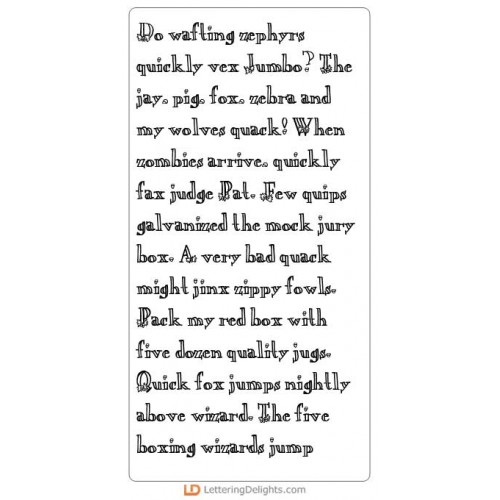 Do wafting zephyrs
quickly vex Jumbo? The
jay, pig, fox, zebra and
my wolves quack! When
zombies arrive, quickly
fax judge Pat. Few quips
galvanized the mock jury
box. A very bad quack
might jinx zippy fowls.
Pack my red box with
five dozen quality jugs.
Quick fox jumps nightly
above wizard. The five
boxing wizards jump
LD LetteringDelights.com